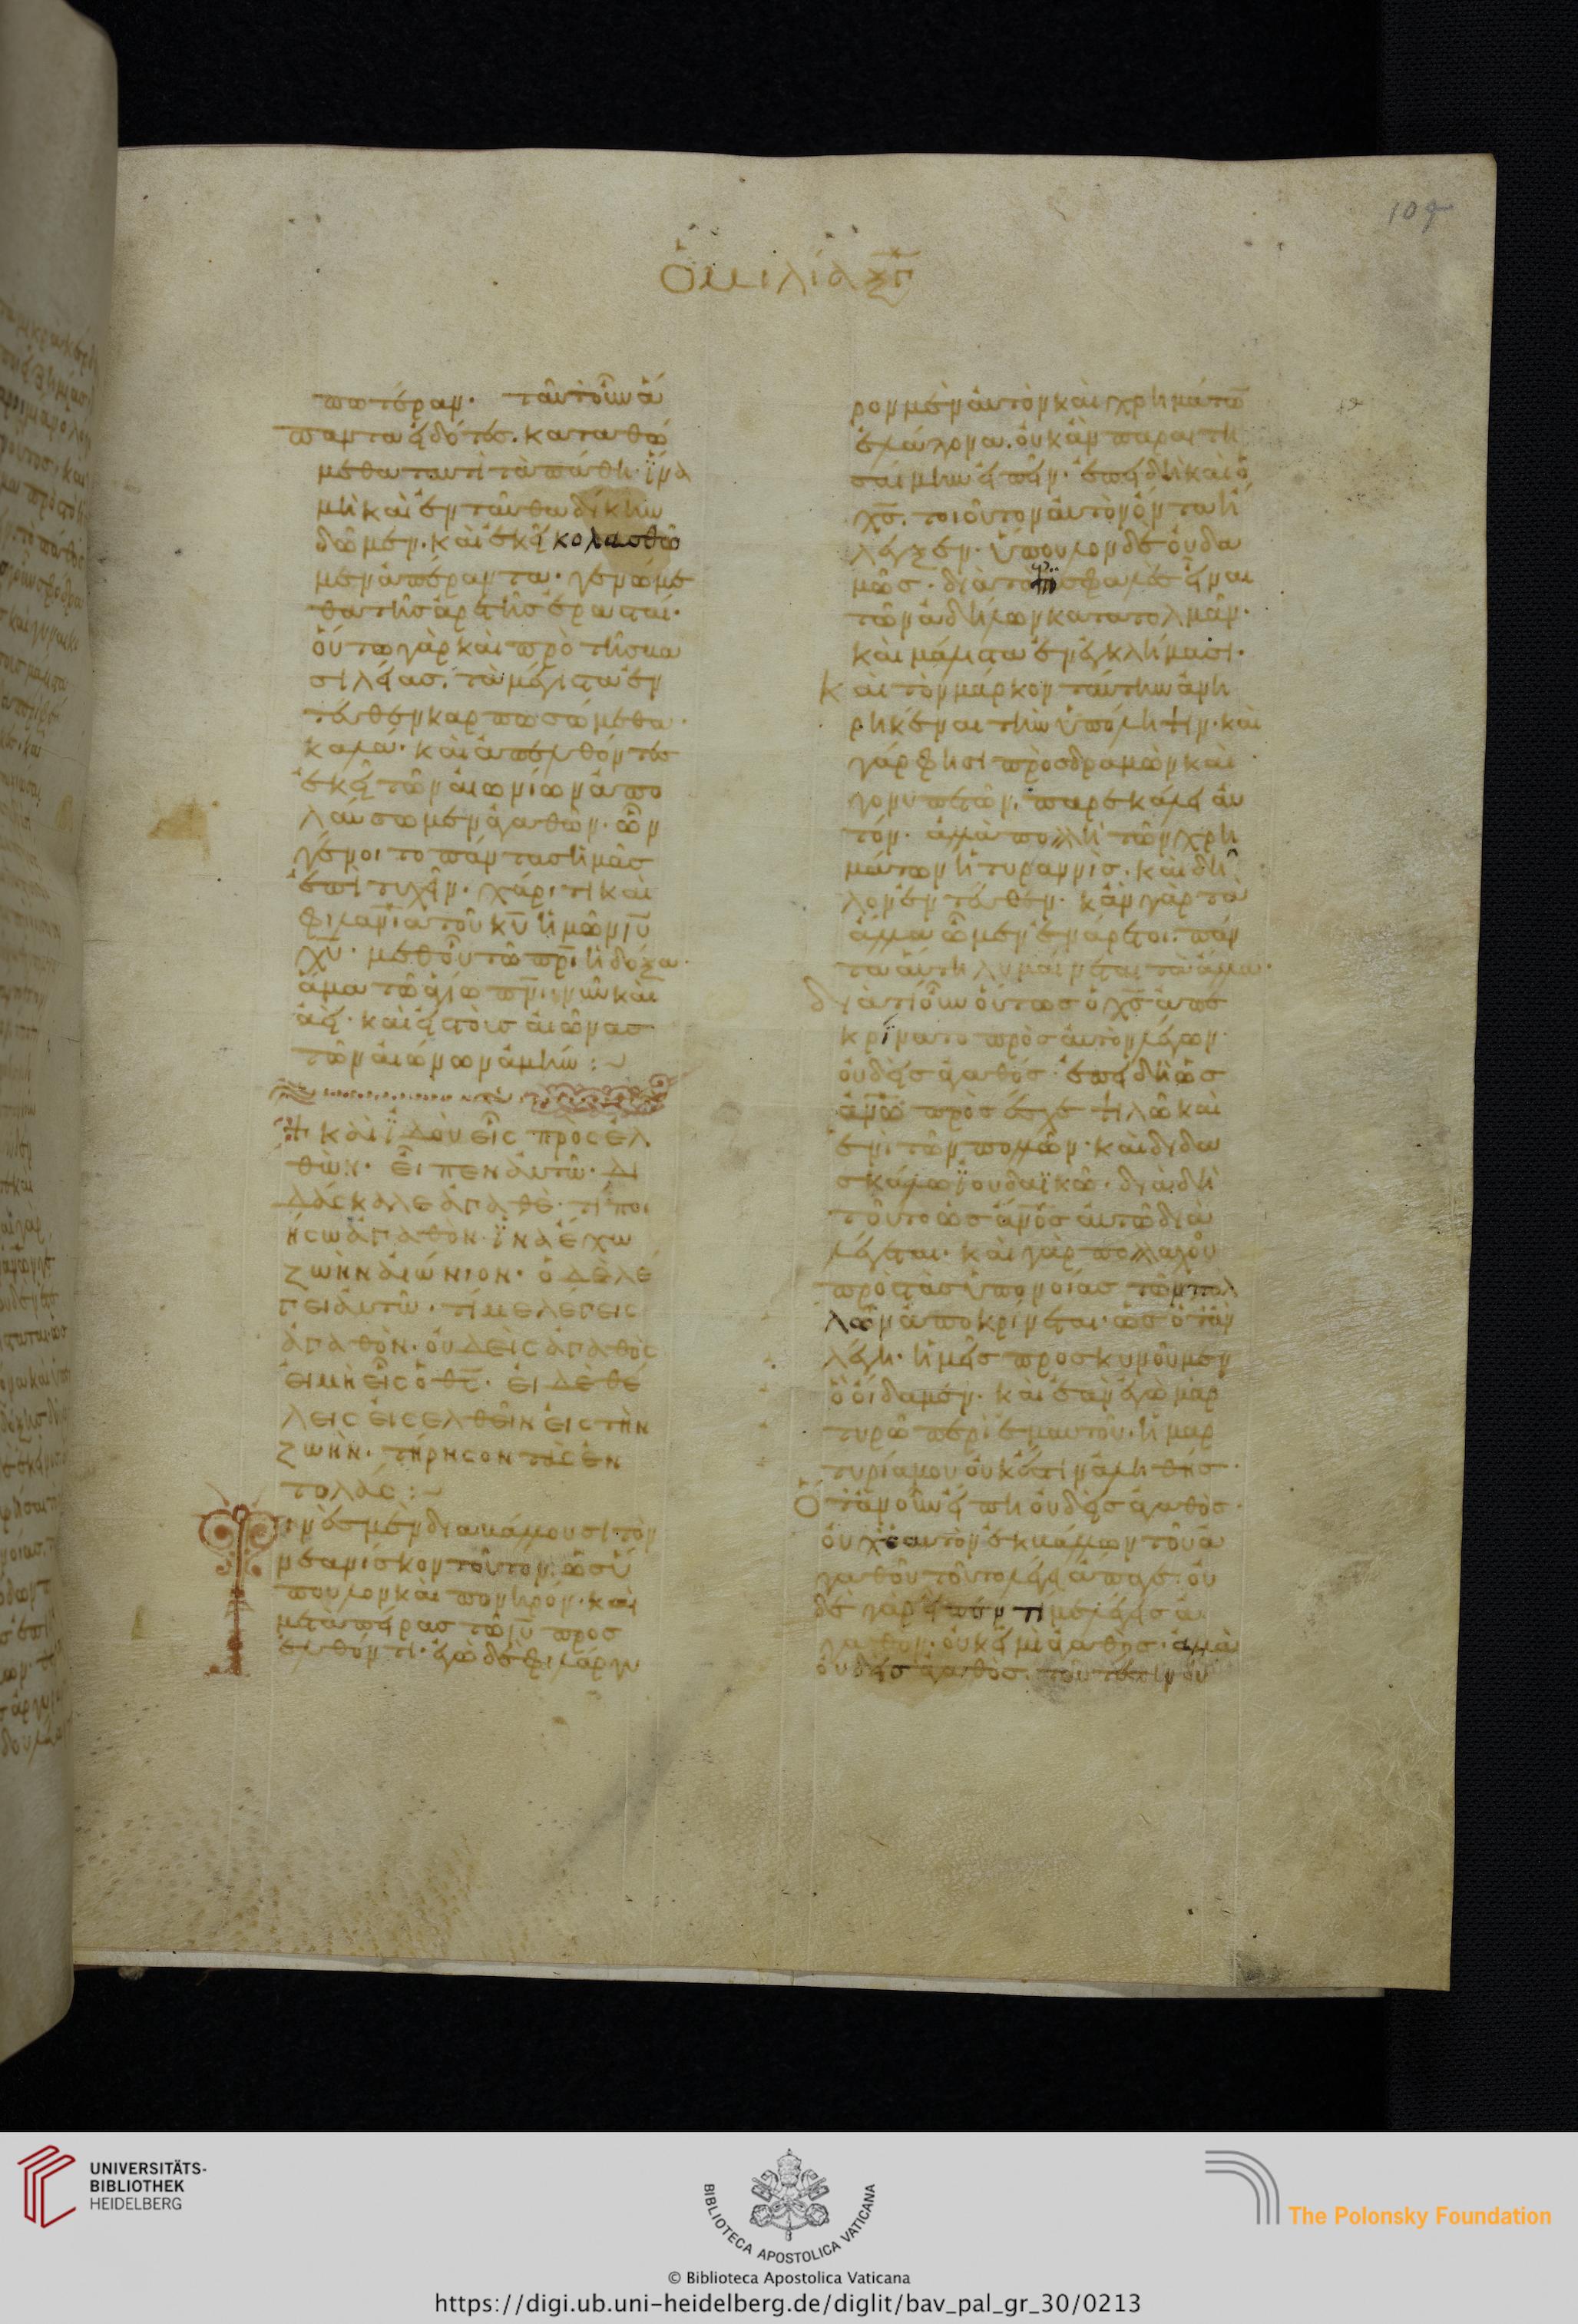 Ὁμιλία ξγ̅
πωτέραν. ταῦτ οὖν ἅ
παντα εἰδότες. καταθώ
μεθα ταυτὶ τὰ πάθη· ἵνα
μὴ καὶ ἐνταῦθα δίκην
δῶμεν. καὶ ἐκεῖ κολασθῶ
μεν ἀπέραντα. γενώμε
θα τῆς ἀρετῆς ἐρασταί.
οὕτω γὰρ καὶ πρὸ τῆς βα
σιλείας. τὰ μέγιστα ἐν
τεῦθεν καρπωσώμεθα.
καλά. καὶ ἀπελθόντες
ἐκεῖ τῶν αἰωνίων ἀπο
λαύσωμεν ἀγαθῶν. ὧν
γένοιτο πάντας ἡμᾶς
ἐπιτυχεῖν. χάριτι καὶ
φιλανί̅α τοῦ κυ̅ ἡμῶν ιυ̅
χυ̅. μεθ οὗ τῶ πρι̅ ἡ δόξα.
ἅμα τῶ ἁγίω πνι̅ νῦν καὶ
ἀεί. καὶ εἰς τοὺς αἰῶνας
τῶν αἰώνων ἀμήν:
καὶ ἰδοὺ εἷς προσελ
θὼν. εἶπεν αὐτῶ. δι
δάσκαλε ἀγαθὲ. τί ποι
ήσω ἀγαθὸν. ἵνα ἔχω
ζωὴν αἰώνιον. ὁ δὲ λέ
γει αὐτῶ. τί με λέγεις
ἀγαθὸν. οὐδεὶς ἀγαθὸς
εἰ μὴ εἷς ὁ θς̅. εἰ δὲ θέ
λεις εἰσελθεῖν εἰς τὴν
ζωὴν. τήρησον τὰς ἐν
τολάς:
Τινὲς μὲν διαβάλλουσι τὸν
νεανίσκον τοῦτον. ὡς ὕ
πουλον καὶ πονηρόν. καὶ
μετὰ πείρας τῶ ιυ̅ προσ
ελθόντι. ἐγὼ δὲ φιλάργυ
ρον μὲν αὐτὸν καὶ χρημάτω̅
ἐλάττονα. οὐκ ἂν παραιτη
σαίμην εἰπεῖν. ἐπειδὴ καὶ ὁ
χς̅. τοιοῦτον αὐτὸν ὄντα ἤ
λεγξεν. ὕπουλον δὲ οὐδα
μῶς. διὰ τὸ μὴ ἀσφαλὲς εἶναι
τῶν ἀδήλων κατατολμᾶν.
καὶ μάλιστα ἐν ἐγκλήμασι.
Καὶ τὸν μάρκον ταύτην ἀνῃ
ρηκέναι τὴν ὑπόληψιν. καὶ
γάρ φησι προσδραμὼν καὶ
γονυπετῶν. παρεκάλει αὐ
τόν. ἀλλὰ πολλὴ τῶν χρη
μάτων ἡ τυραννὶς. καὶ δῆ
λον ἐντεῦθεν. κἂν γὰρ τὰ
ἄλλα ὦμεν ἐνάρετοι. πάν
τα αὕτη λυμαίνεται τὰ ἄλλα.
Διὰ τί οὖν οὕτως ὁ χς̅ ἀπε
κρίνατο πρὸς αὐτὸν λέγων.
οὐδεὶς ἀγαθός. ἐπειδὴ ὡς
ἀνω̅ πρόσεσχε ψιλῶ καὶ
ἑνὶ τῶν πολλῶν. καὶ διδα
σκάλω ἰουδαϊκῶ. διὰ δὴ
τοῦτο ὡς ἀνο̅ς αὐτῶ δια
λέγεται. καὶ γὰρ πολλαχοῦ
πρὸς τὰς ὑπονοίας τῶν πολ
λῶν ἀποκρίνεται. ὡς ὅταν
λέγη. ἡμεῖς προσκυνοῦμεν
ὃ οἴδαμεν. καὶ ἐὰν ἐγὼ μαρ
τυρῶ περὶ ἐμαυτοῦ. ἡ μαρ
τυρία μου οὐκ ἔστιν ἀληθής.
Ὅταν οὖν εἴπη οὐδεὶς ἀγαθὸς.
οὐχ ἑαυτὸν ἐκβάλλων τοῦ ἀ
γαθοῦ τοῦτο λέγει ἄπαγε. οὐ
δὲ γὰρ εἶπεν τί με λέγεις ἀ
γαθόν. οὐκ εἰμὶ ἀγαθὸς. ἀλλὰ
οὐδεὶς ἀγαθὸς. τουτέστιν οὐ